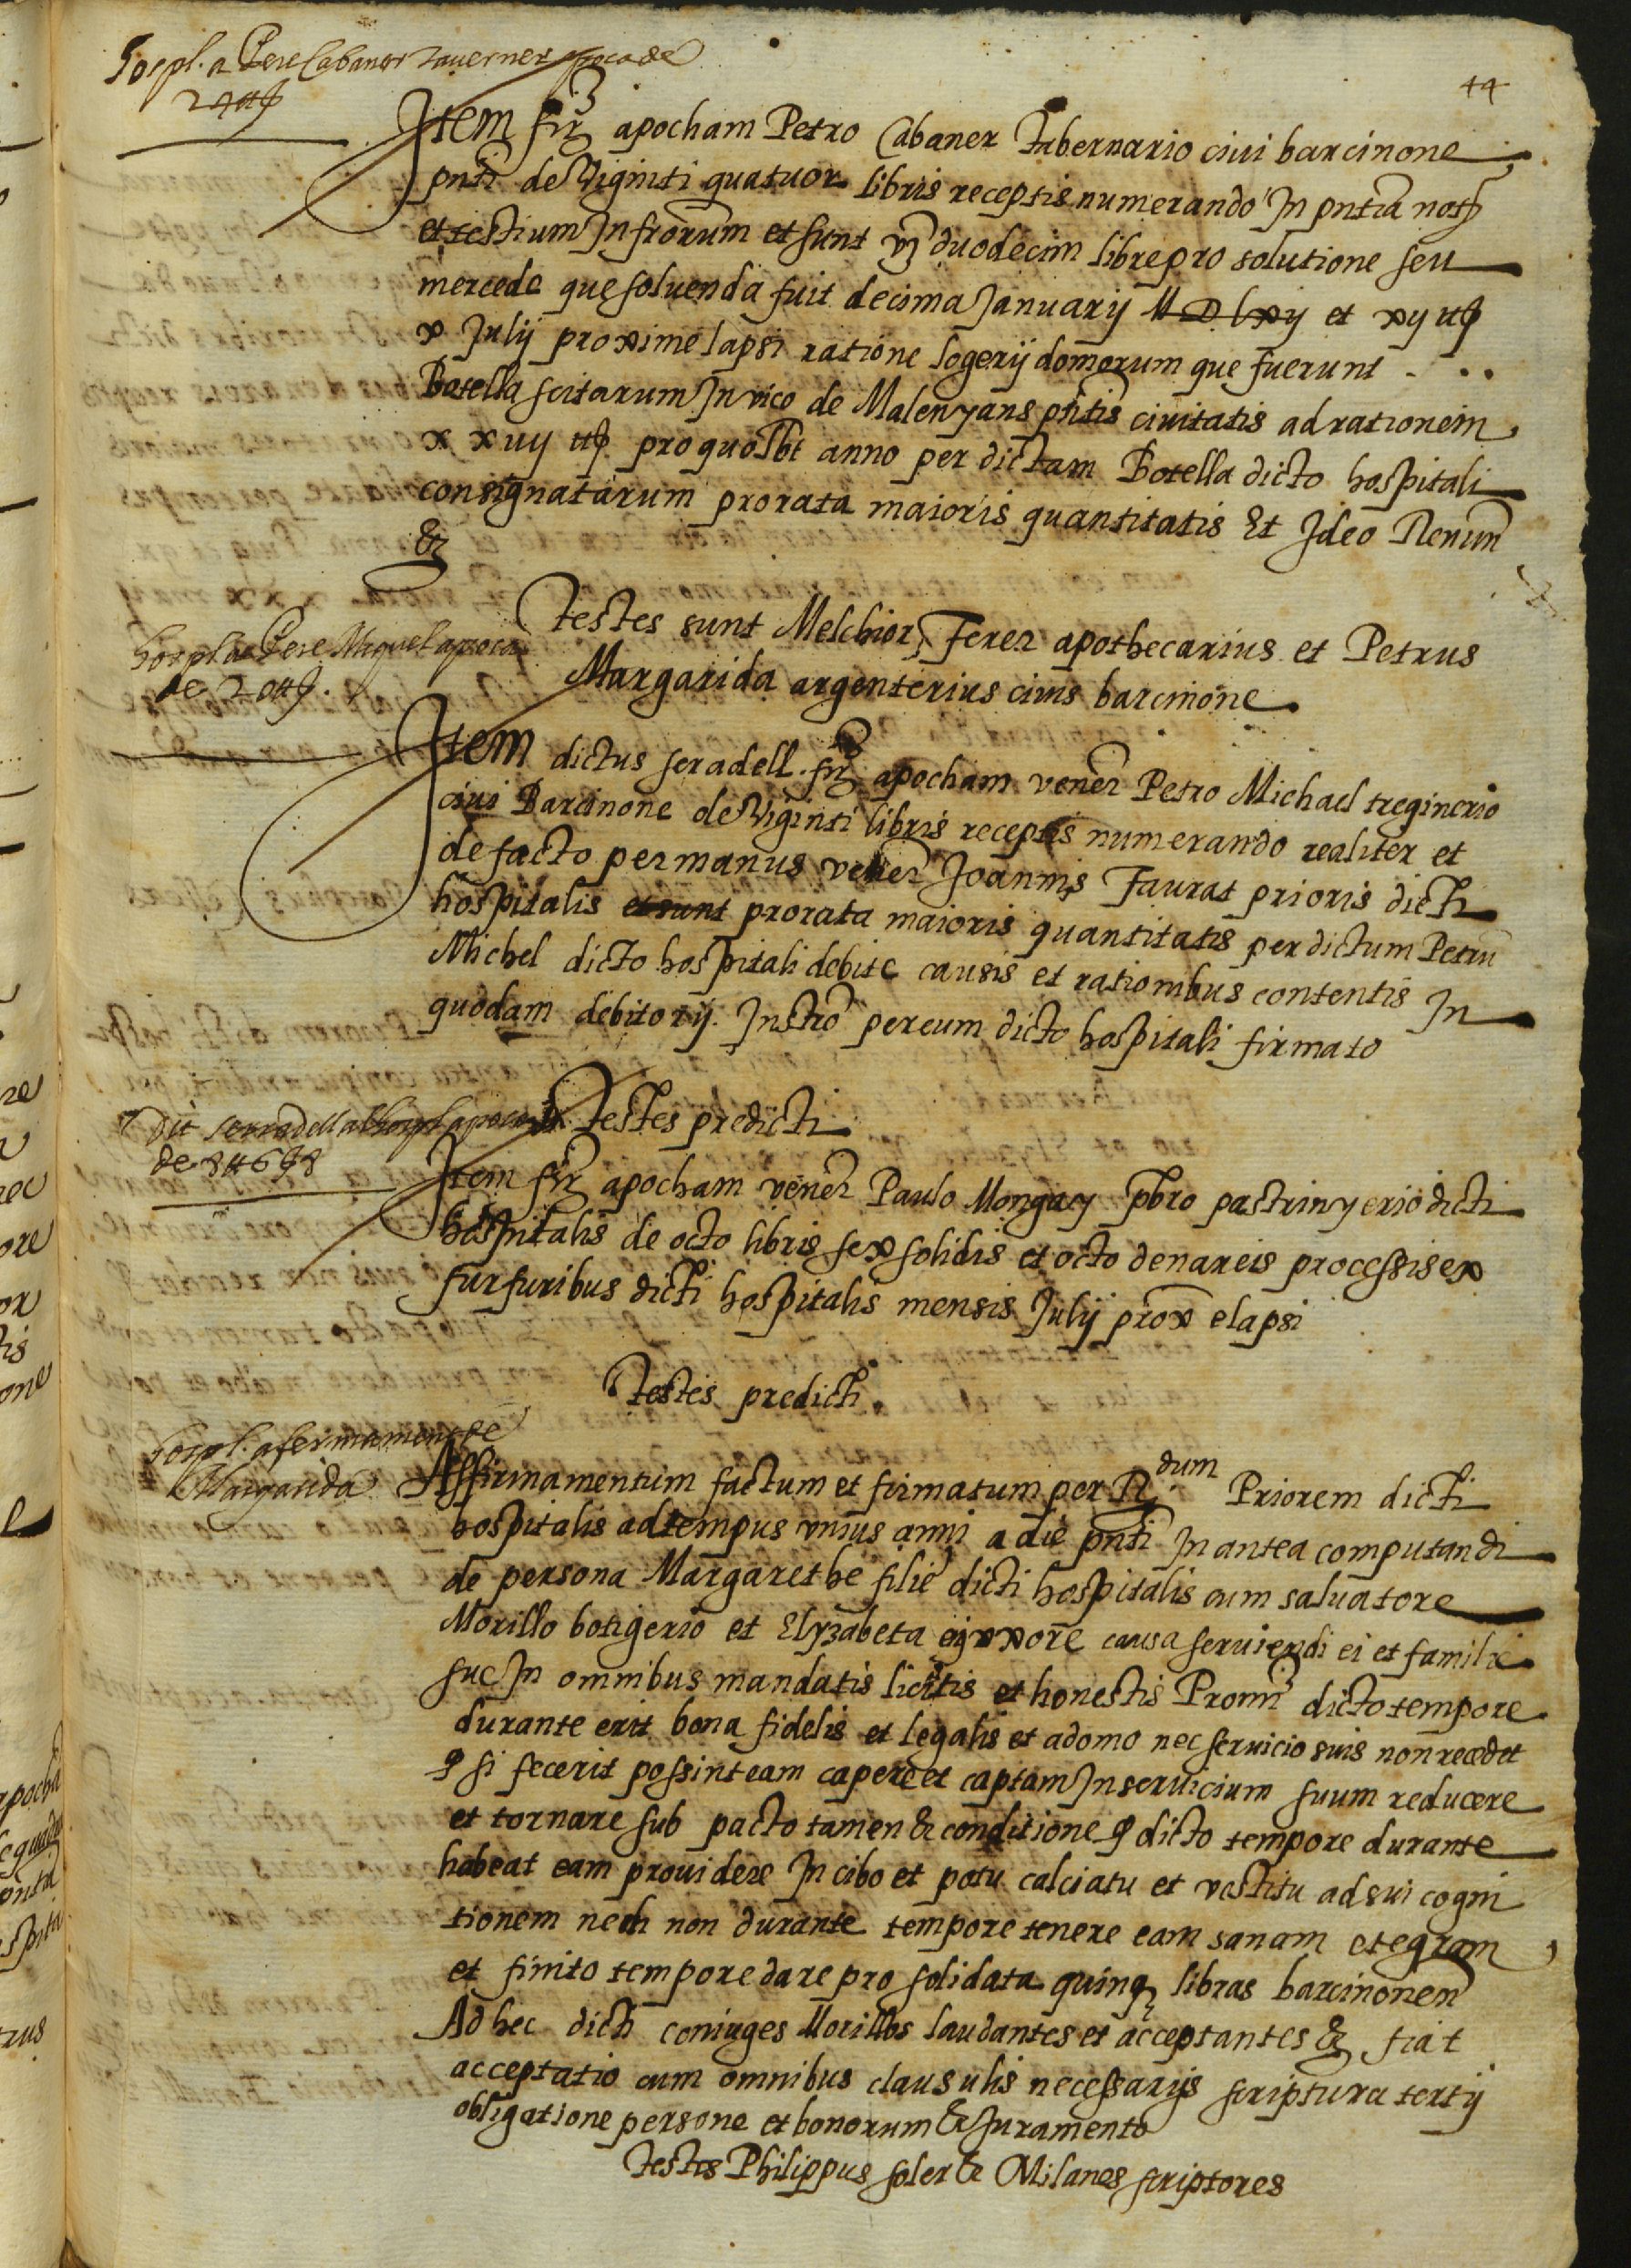 44
Hospl. a Pere Cabaner taverner apoca de
24 ll
Item fir apocham Petro Cabaner tabernario ciui barcinone
pnti de Viginti quatuor libris receptis numerando In pntia not
et testium Infrorum et sunt vz duodecim libre pro solutione seu
mercede que soluenda fuit decima Januarij M D lxij et xij ll
x Julij proxime lapsi ratione logerij domorum que fuerunt . . .
Botella scitarum In vico de Malenyans pntis ciuitatis ad rationem
x x iiij ll pro quolbt anno per dictam Botella dicto hospitali
consignatarum prorata maioris quantitatis Et Ideo Renun
&
testes sunt Melchior Ferer apothecarius et Petrus
Margarida argenterius ciuis barcinone
hospl a Pere Miquel apoca
de 20 ll.
Item dictus seradell. fir apocham vener Petro Michael treginerio
ciui Barcinone de Viginti libris receptis numerando realiter et
de facto per manus vener Joannis Faurat prioris dicti
hospitalis et sunt prorata maioris quantitatis per dictum Petru
Michel dicto hospitali debite causis et rationibus contentis In
quodam debitorij Instro per eum dicto hospitali firmato
testes predicti
dit serradell al hospl apoca
de 8 ll 6 s 8
Item fir apocham vener Paulo Mongay pbro pastrinyerio dicti
hospitalis de octo libris sex solidis et octo denareis processis ex
furfuribus dicti hospitalis mensis Julij prox elapsi
testes predicti
hospl. afermament de
Margarida
Affirmamentum factum et firmatum per R.dum Priorem dicti
hospitalis ad tempus vnius anni a die pnti In antea computandi
de persona Margarethe filie dicti hospitalis cum saluatore
Morillo botigerio et Elyzabeta eij vxore causa seruiendi ei et familie
sue In omnibus mandatis licitis et honestis Promi dicto tempore
durante erit bona fidelis et legalis et a domo nec seruicio suis non recedet
q si fecerit possint eam capere et captam In seruicium suum reducere
et tornare sub pacto tamen & conditione q dicto tempore durante
habeat eam prouidere In cibo et potu calciatu et vestitu ad sui cogni
tionem nech non durante tempore tenere eam sanam et egram
et finito tempore dare pro solidata quinq libras barcinonen
Ad hec dicti coniuges Morillos laudantes et acceptantes & fiat
acceptatio cum omnibus clausulis necessarijs scriptura tertij
obligatione persone et bonorum & Juramento
testes Philippus soler & Milanes scriptores